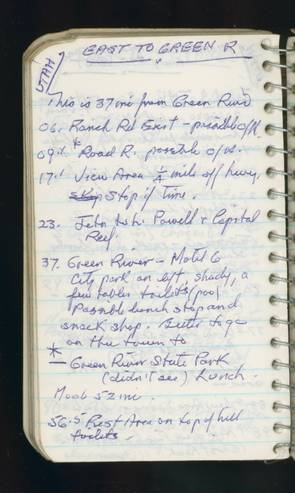 UTAH
EAST TO GREEN R
This is 37 mi from Green River
06. Ranch Rd Exit - possible o/n
09.1 * Road R. possible o/n.
17.1 View Area 1/4 mile off hwy,
Stop if time.
23. Jctn to L. Powell + Capital
Reef
37. Green River - Motel 6
City park on left, shady, a
few tables toilets/pool
Possible lunch stop and
snack shop. Better to go
on thru town to
* - Green River State Park
(didn't see) Lunch.
Moab 52 mi.
56.5 Rest Area on top of hill
toilets.